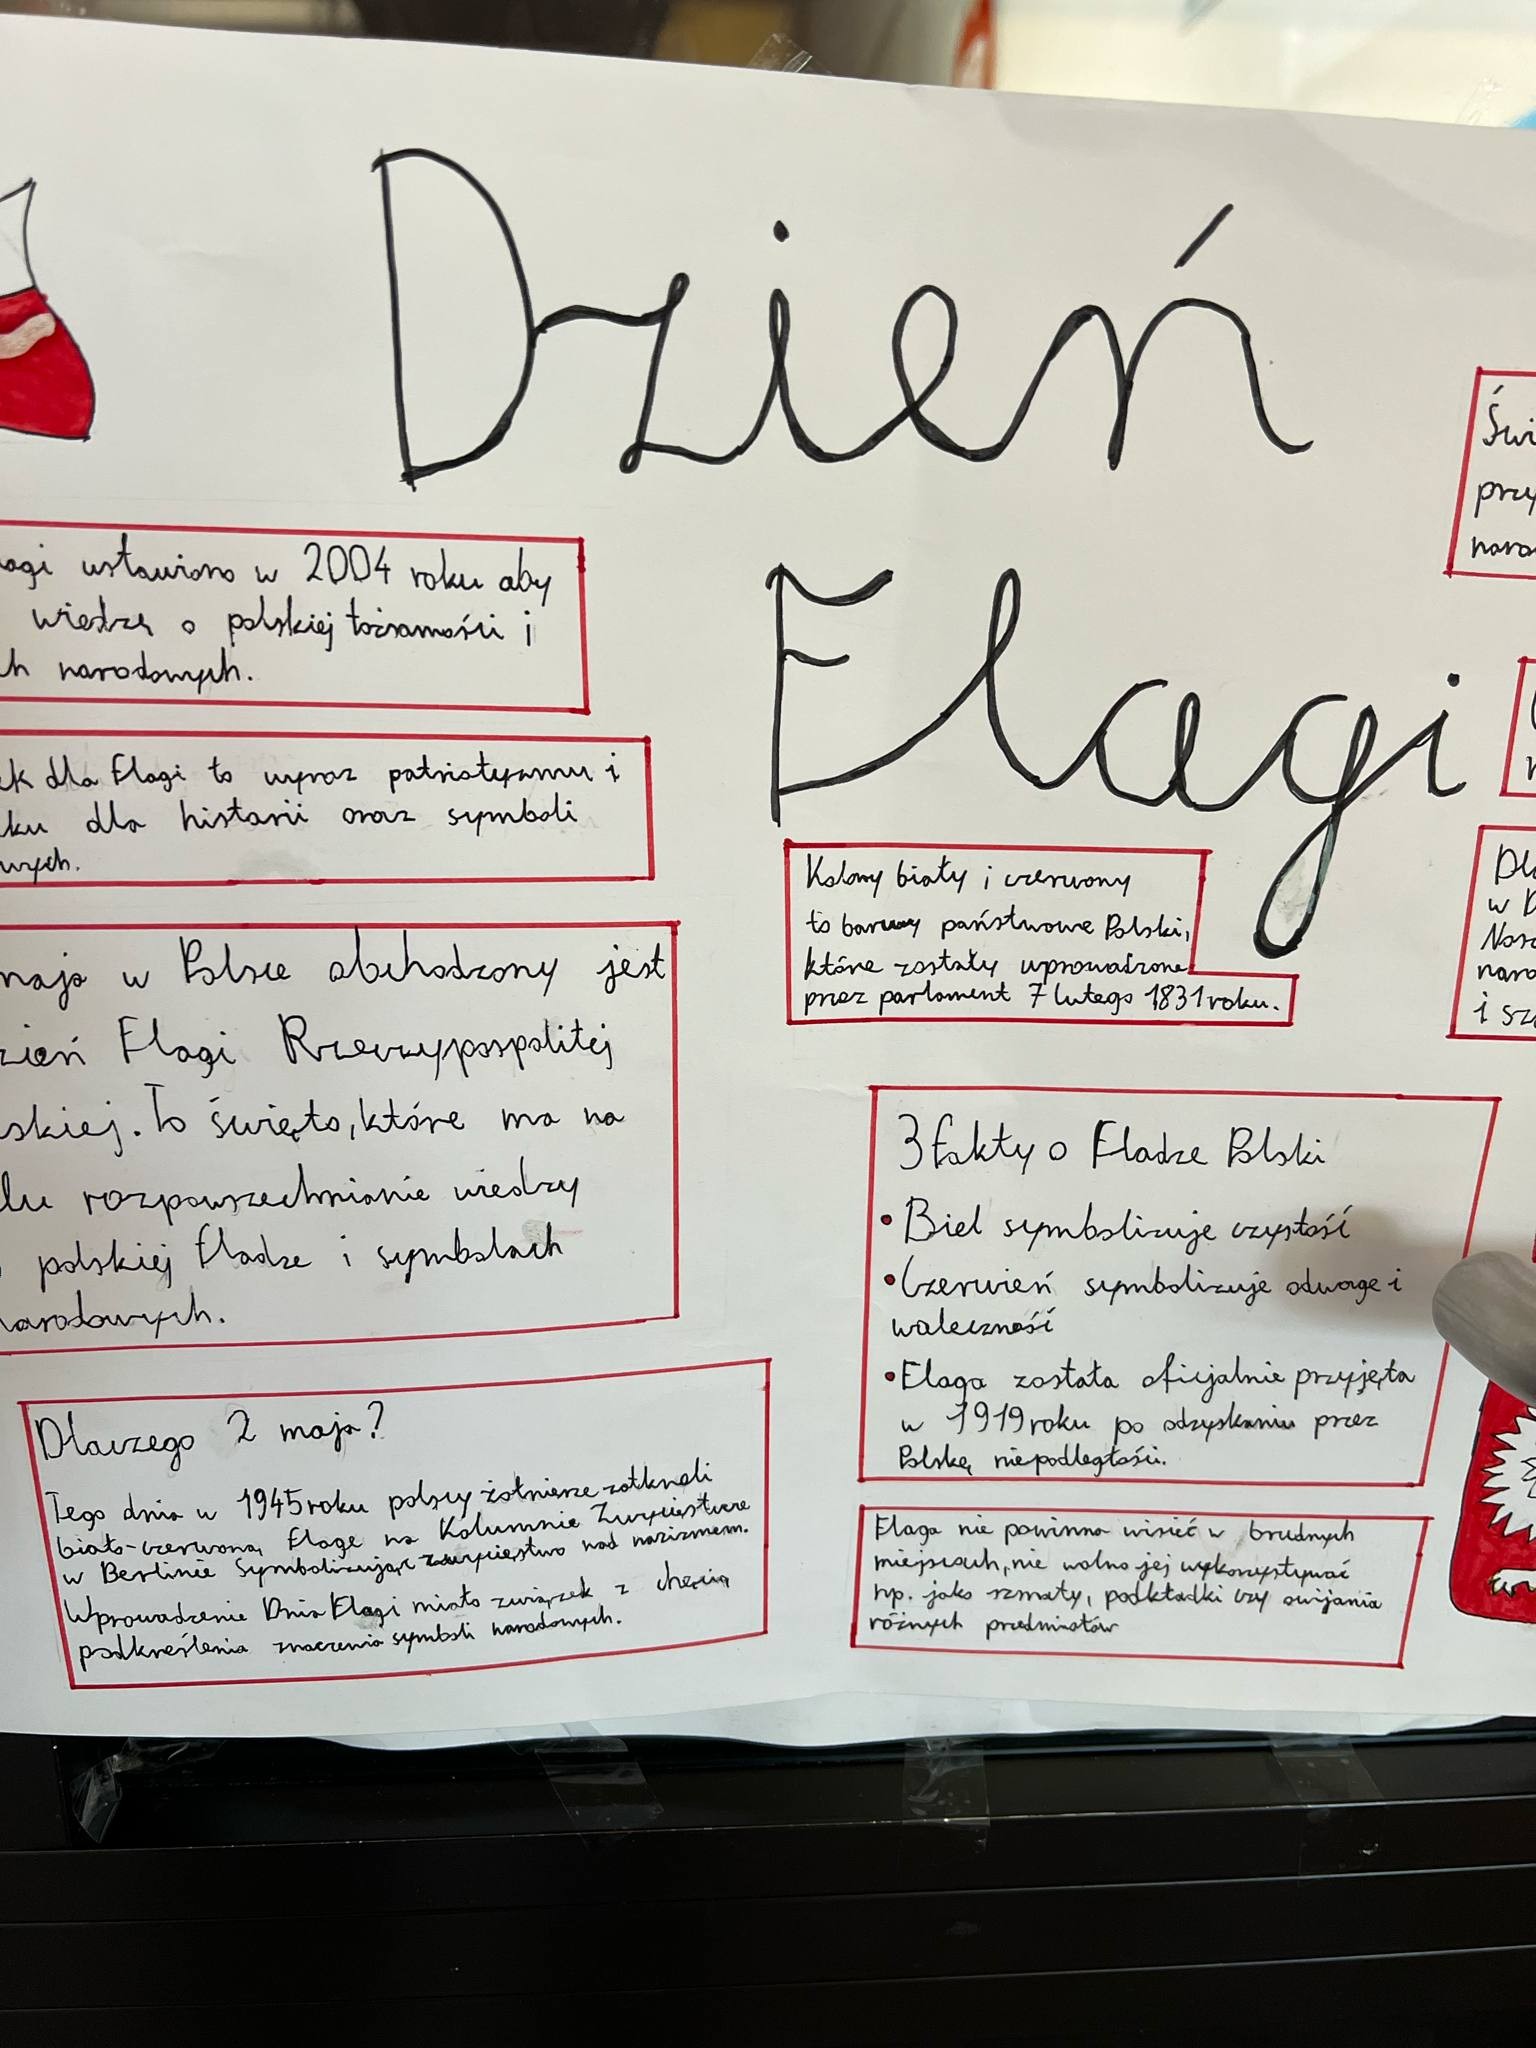 Dzień
Flagi
agi ustawiono w 2004 roku aby
wiedzę o polskiej tożsamości i
ch narodowych.
ek dla Flagi to wyraz patriotyzmu i
ku dla historii oraz symboli
wych.
maja w Polsce obchodzony jest
zień Flagi Rzeczypospolitej
skiej. To święto, które ma na
lu rozpowszechnianie wiedzy
polskiej fladze i symbolach
narodowych.
Dlaczego 2 maja?
Tego dnia w 1945 roku polscy żołnierze zatknęli
biało-czerwoną Flagę na Kolumnie Zwycięstwa
w Berlinie symbolizując zwycięstwo nad nazizmem.
Wprowadzenie Dnia Flagi miało związek z chęcią
podkreślenia znaczenia symboli narodowych.
Kolory biały i czerwony
to barwy państwowe Polski,
które zostały wprowadzone
przez parlament 7 lutego 1831 roku.
3 fakty o Fladze Polski
• Biel symbolizuje czystość
• Czerwień symbolizuje odwagę i
waleczność
• Flaga została oficjalnie przyjęta
w 1919 roku po odzyskaniu przez
Polskę niepodległości.
Flaga nie powinna wisieć w brudnych
miejscach, nie wolno jej wykorzystywać
np. jako szmaty, podkładki czy owijania
różnych przedmiotów
Świ
przy
naro
Dl
w D
naro
i sz